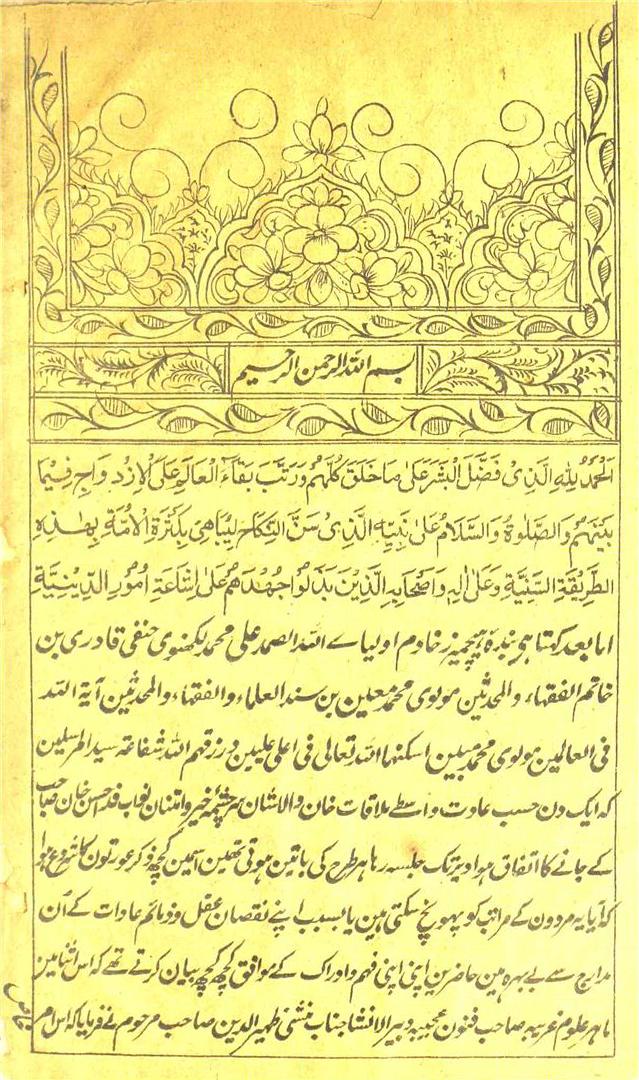 بسم الله الرحمن الرحيم
اَلْحَمْدُ لِلّٰهِ الَّذِیْ فَضَّلَ الْبَشَرَ عَلٰی مَا خَلَقَ کُلِّهِمْ وَرَتَّبَ بَقَآءَ الْعَالَمِ عَلَی الْاِزْدِوَاجِ فِیْمَا
بَیْنَهُمْ وَالصَّلٰوةُ وَالسَّلَامُ عَلٰی نَبِیِّهِ الَّذِیْ سَنَّ النِّکَاحَ لِیُبَاهِیَ بِکَثْرَةِ الْاُمَّةِ بِهٰذِهِ
الطَّرِیْقَةِ السَّنِیَّةِ وَعَلٰی اٰلِهٖ وَاَصْحَابِهِ الَّذِیْنَ بَذَلُوْا جُهْدَهُمْ عَلٰی اِشَاعَةِ اُمُوْرِ الدِّیْنِیَّةِ
اما بعد کہتا ہی بندہ ہیچمیرز خادم اولیاے اللہ الصمد علی محمد لکھنوی حنفی قادری بن
خاتم الفقہاء والمحدثین مولوی محمد معین بن سند العلماء والفقہاء والمحدثین آیۃ اللہ
فی العالمین مولوی محمد مبین اسکنہما اللہ تعالی فی اعلی علیین ورزقہم اللہ شفاعۃ سید المرسلین
کہ ایک دن حسب عادت واسطے ملاقات خان والاشان سرچشمۂ خیر وامتنان نواب فدا حسن خان صاحب
کے جانے کا اتفاق ہوا دیر تک جلسہ رہا ہر طرح کی باتین ہوتی تھین اسمین کچھ ذکر عورتون کا شروع ہوا
کہ آیا یہ مردون کے مراتب کو پہونچ سکتی ہین یا بسبب اپنے نقصان عقل وذمائم عادات کے اُن
مدارج سے بے بہرہ ہین حاضرین اپنی اپنی فہم وادراک کے موافق کچھ کچھ بیان کرتے تھے کہ اس اثنا مین
ماہر علوم غریبہ صاحب فنون عجیبہ دبیر الانشا جناب منشی ظہیر الدین صاحب مرحوم نے فرمایا کہ اس امر